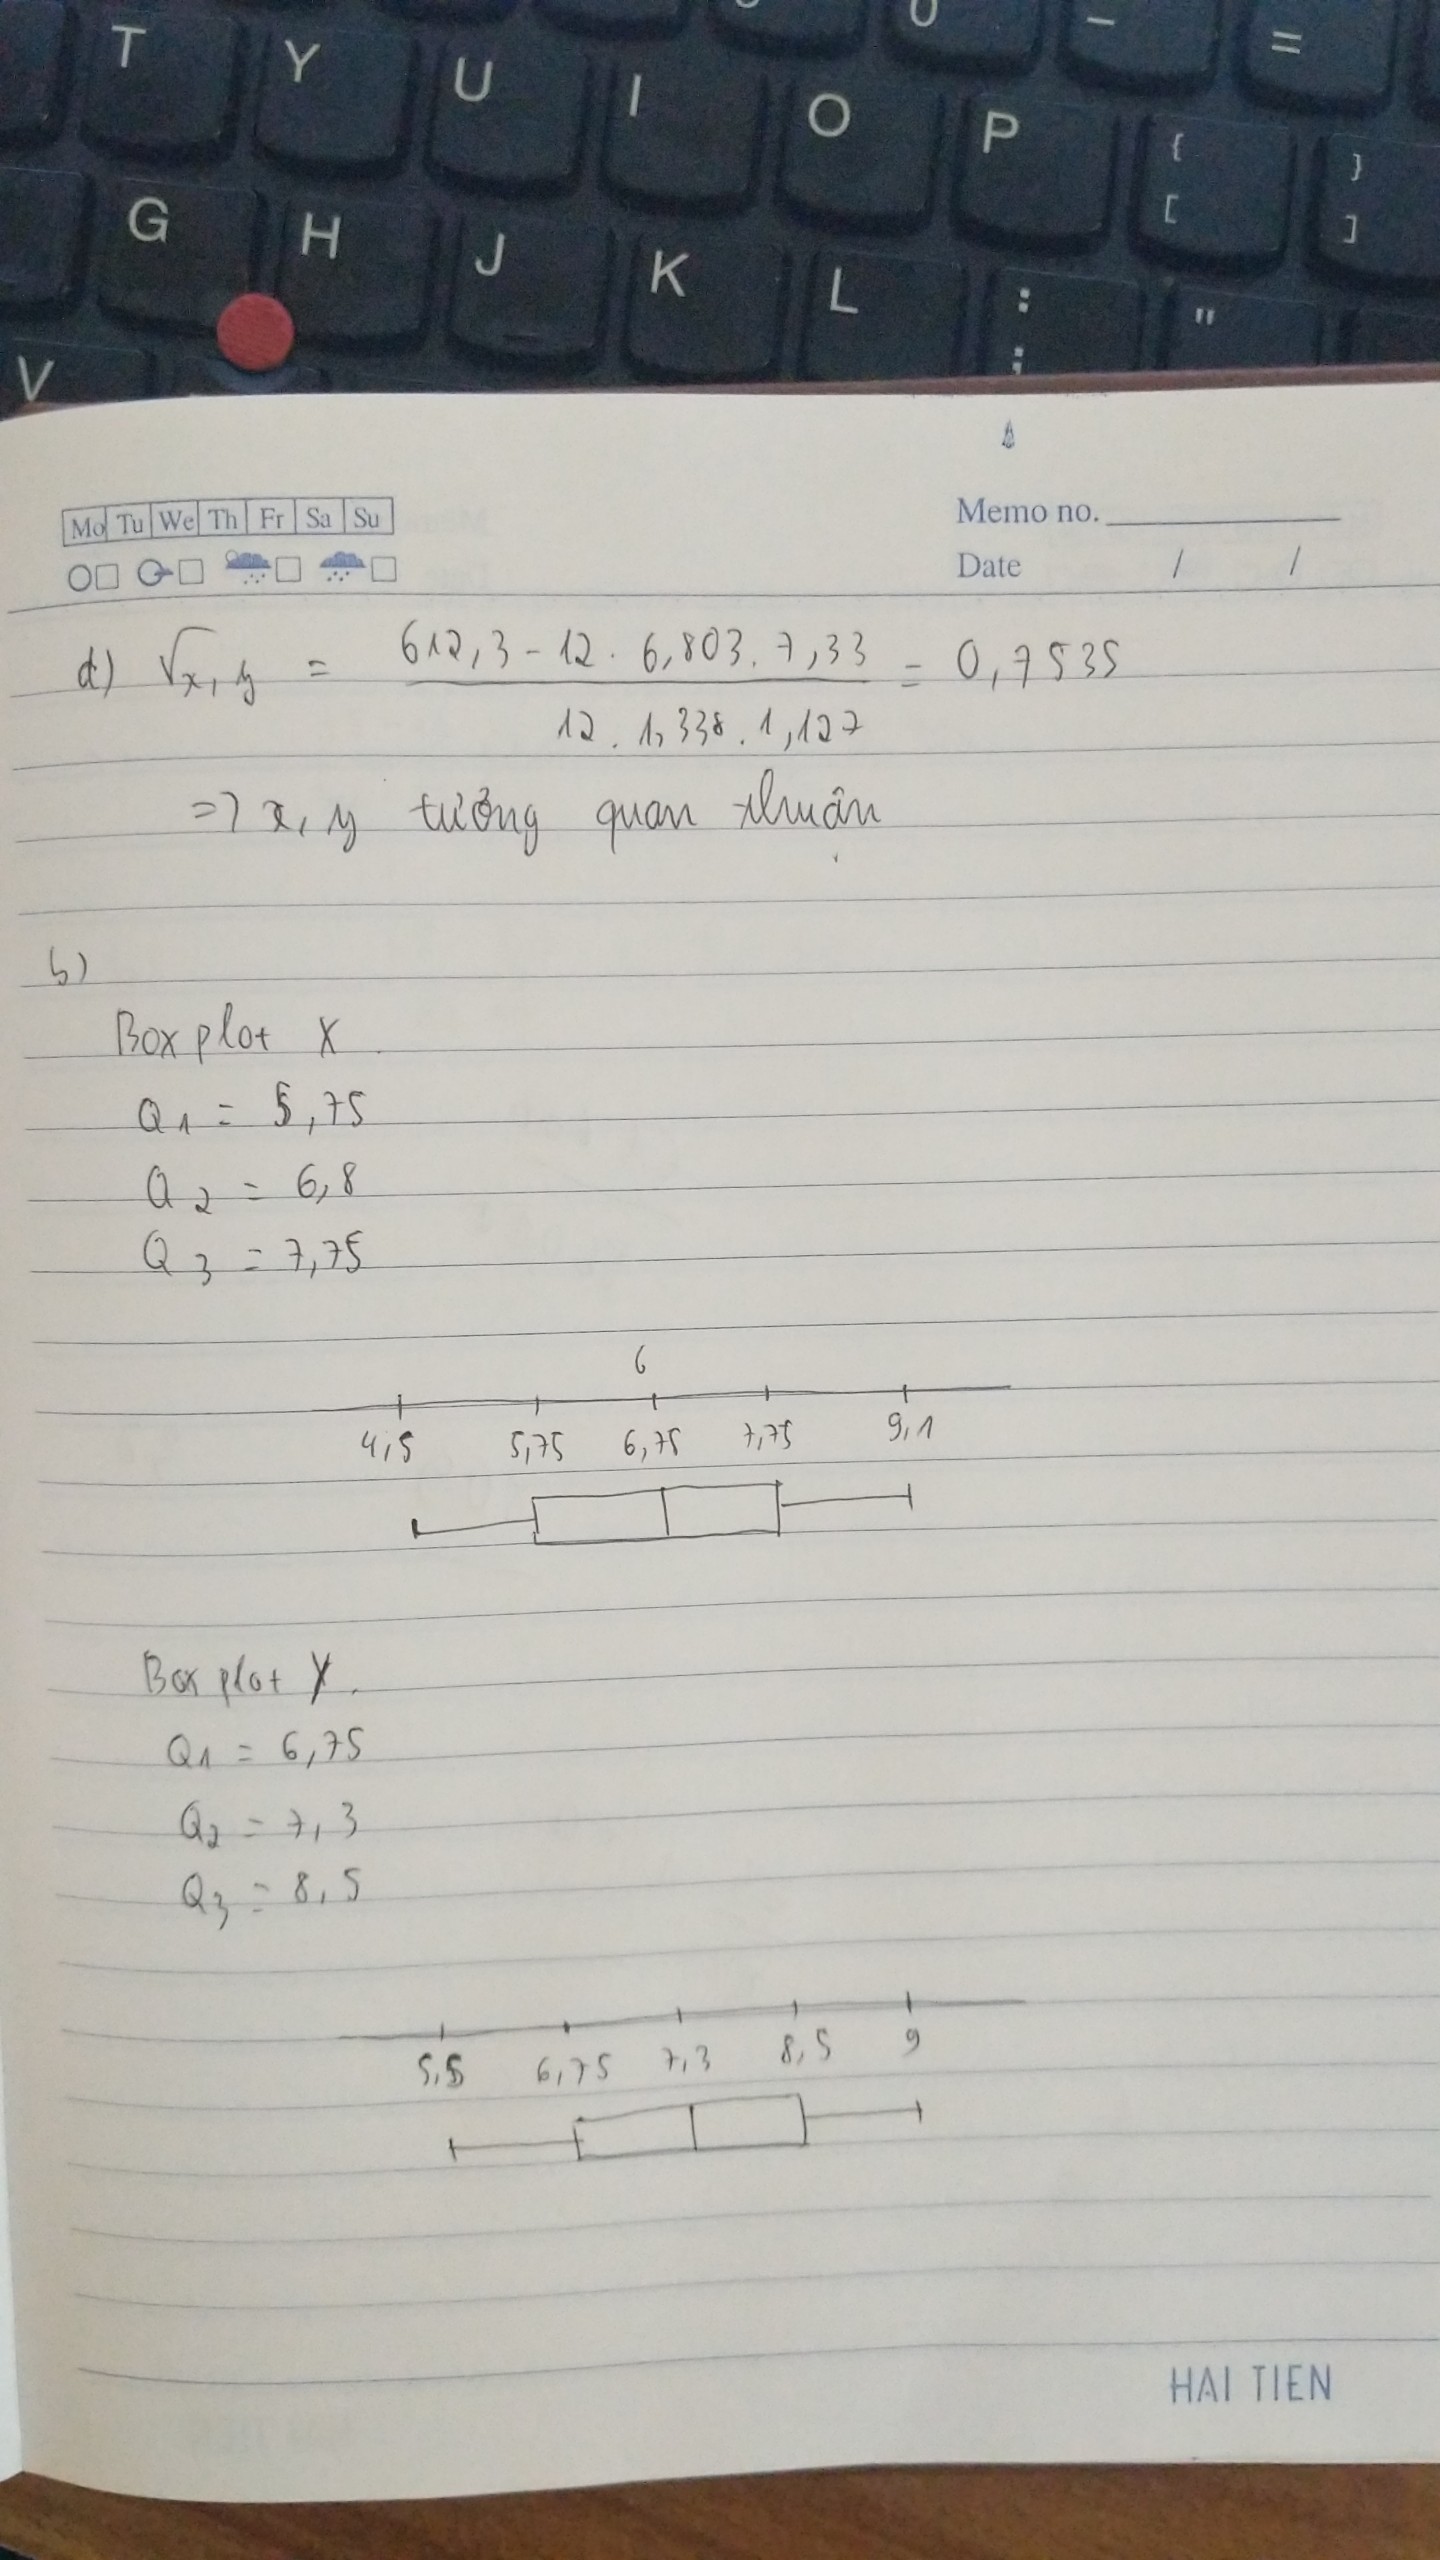 T Y U I O P { [ } ] - =
G H J K L : ; "
V
Mo Tu We Th Fr Sa Su
Memo no.
Date / /
d) √x,y = 612,3 - 12 . 6,803 . 7,33 / 12 . 1,338 . 1,127 = 0,7535
=> x, y tương quan thuận
b)
Box plot X
Q1 = 5,75
Q2 = 6,8
Q3 = 7,75
6
4,5 5,75 6,75 7,75 9,1
Box plot Y.
Q1 = 6,75
Q2 = 7,3
Q3 = 8,5
5,5 6,75 7,3 8,5 9
HAI TIEN